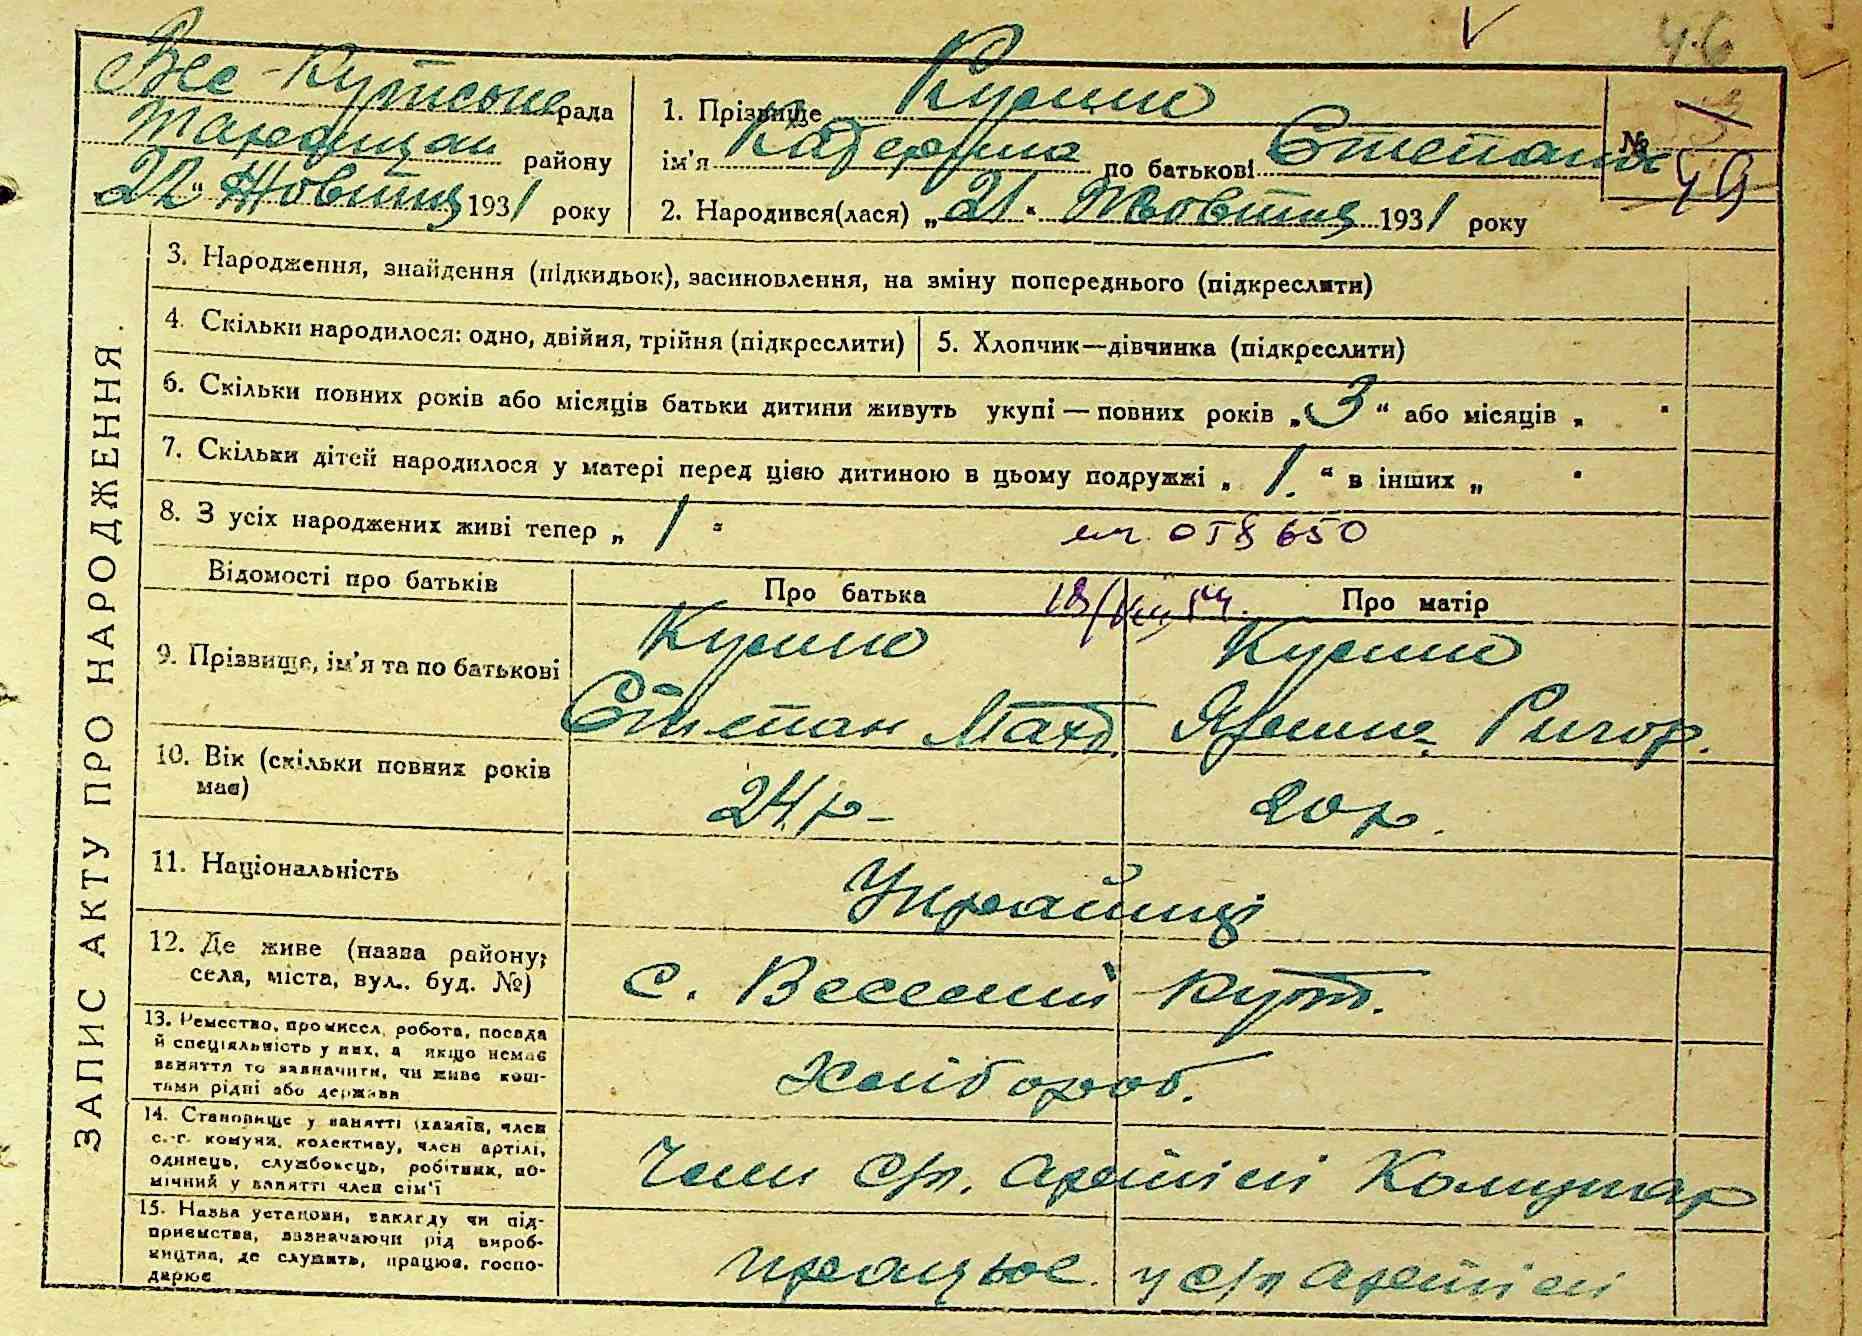 46
Вес-Кутська рада
Таращан району
„22“ Жовтня 1931 року
1. Прізвище
ім'я Катерина по батькові Степанов
2. Народився(лася) „21“ Жовтня 1931 року
№ 49
ЗАПИС АКТУ ПРО НАРОДЖЕННЯ.
3. Народження, знайдення (підкидьок), засиновлення, на зміну попереднього (підкреслити)
4. Скільки народилося: одно, двійня, трійня (підкреслити)
5. Хлопчик—дівчинка (підкреслити)
6. Скільки повних років або місяців батьки дитини живуть укупі — повних років „3“ або місяців „ “
7. Скільки дітей народилося у матері перед цією дитиною в цьому подружжі „1.“ в інших „ “
8. З усіх народжених живі тепер „1“
650
Відомості про батьків
Про батька
Про матір
9. Прізвище, ім'я та по батькові
Степан
Ярина Григор.
10. Вік (скільки повних років
має)
24 р-
20 р.
11. Національність
Українці
12. Де живе (назва району;
села, міста, вул.. буд. №)
с. Веселий Кут.
13. Ремество, промисел, робота, посада
й спеціяльність у них, а якщо немає
заняття то зазначити, чи живе кош-
тами рідні або держави
хлібороб.
14. Становище у занятті (хазяїн, член
с.-г. комуни, колективу, член артілі,
одинець, службовець, робітник, по-
мічний у занятті член сім'ї
Член с/г. артілі Комунар
15. Назва установи, закладу чи під-
приємства, зазначаючи рід вироб-
ництва, де служить, працює, госпо-
дарює
працює у с/г артілі